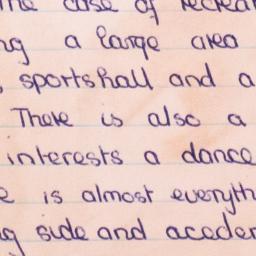 the case of recrea
ng a large area
, sportshall and a
There is also a
interests a dance
e is almost everyth
ng side and acader